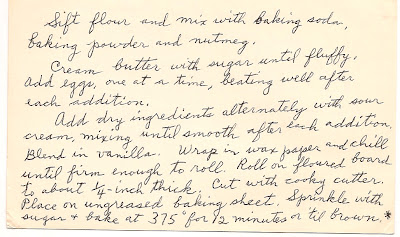 Sift flour and mix with baking soda,
baking powder and nutmeg.
Cream butter with sugar until fluffy.
Add eggs, one at a time, beating well after
each addition.
Add dry ingredients alternately with sour
cream, mixing until smooth after each addition.
Blend in vanilla. Wrap in wax paper and chill
until firm enough to roll. Roll on floured board
to about ¼-inch thick. Cut with cooky cutter.
Place on ungreased baking sheet. Sprinkle with
sugar + bake at 375° for 12 minutes or til brown.*